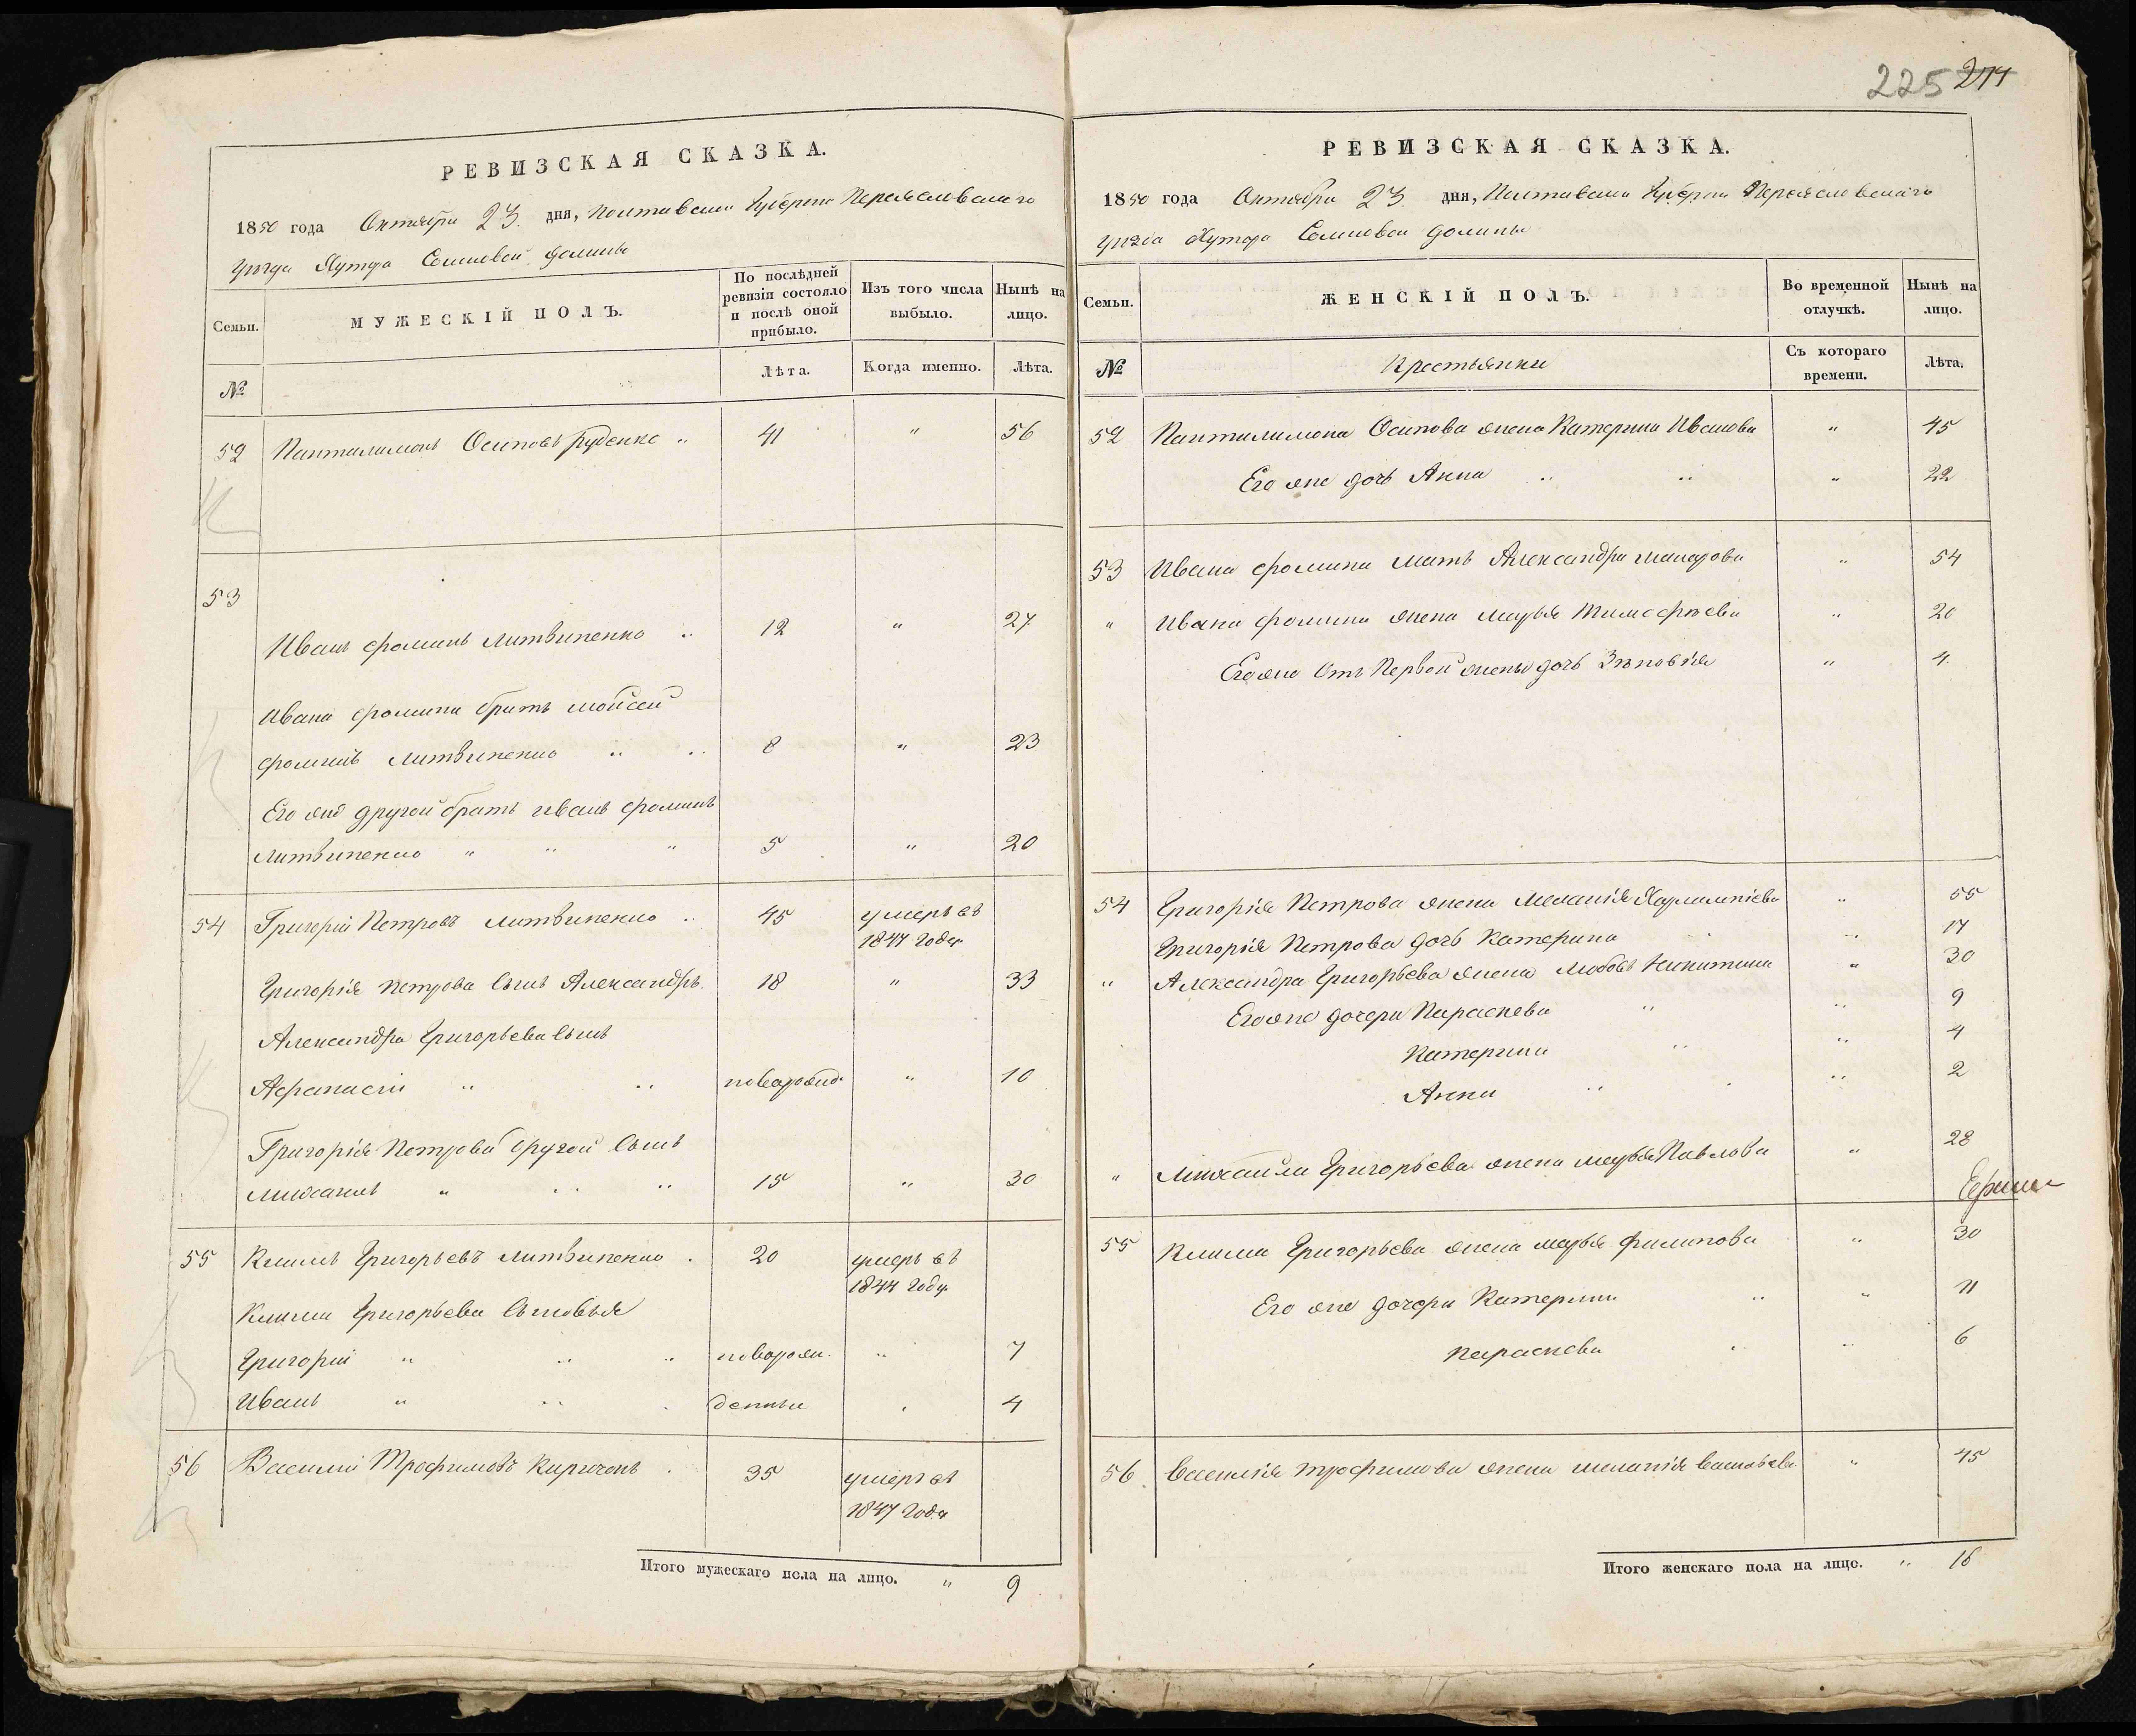 225 274
РЕВИЗСКАЯ СКАЗКА.
1850 года Октября 23. дня, Полтавской Губерніи Переяславскаго
уѣзда Хутора Сомковой долины
Семьи.
МУЖЕСКІЙ ПОЛЪ.
По послѣдней ревизіи состояло и послѣ оной прибыло.
Изъ того числа выбыло.
Нынѣ на лицо.
№
Лѣта.
Когда именно.
Лѣта.
52 Пантилимонъ Осиповъ Руденко " 41 " 56
53
Иванъ Фоминъ Литвиненко " 12 " 27
Ивана Фомина братъ Мойсей
Фоминъ Литвиненко " " 8 " 23
Его же другой братъ Иванъ Фоминъ
Литвиненко " " " 5 " 20
54 Григорій Петровъ Литвиненко " 45 умеръ въ
1847 годѣ
Григорія Петрова Сынъ Александръ. 18 " 33
Александра Григорьева Сынъ
Афанасій " " новорожд. " 10
Григорія Петрова другой Сынъ
Михаилъ " " " 15 " 30
55 Климъ Григорьевъ Литвиненко . 20 умеръ въ
1844 году
Клима Григорьева Сыновья
Григорій " " " новорож. " 7
Иванъ " " . денные . 4
56 Василій Трофимовъ Киричокъ . 35 умеръ въ
1847 годѣ
Итого мужескаго пола на лицо. " 9
РЕВИЗСКАЯ СКАЗКА.
1850 года Октября 23. дня, Полтавской Губерніи Переяславскаго
уѣзда Хутора Сомковой долины
Семьи.
ЖЕНСКІЙ ПОЛЪ.
Во временной отлучкѣ.
Нынѣ на лицо.
№
Крестьянки
Съ котораго времени.
Лѣта.
52 Пантилимона Осипова жена Катерина Иванова " 45
Его же дочь Анна " " " 22
53 Ивана Фомина мать Александра Макарова " 54
" Ивана Фомина жена Марья Тимофѣева " 20
Его же Отъ Первой жены дочь Зѣновія " 4.
54 Григорія Петрова жена Меланія Харлампіева " 55
Григорія Петрова дочь Катерина " 17
" Александра Григорьева жена Любовь Никитина " 30
Его же дочери Параскева " " 9
Катерина " " 4
Анна " " 2
" Михаила Григорьева жена Марья Павлова " 28
55 Клима Григорьева жена Марья Филипова " 30
Его же дочери Катерина " " 11
Параскева " " 6
56. Василія Трофимова жена Меланія Васильева " 45
Итого женскаго пола на лицо. " 16